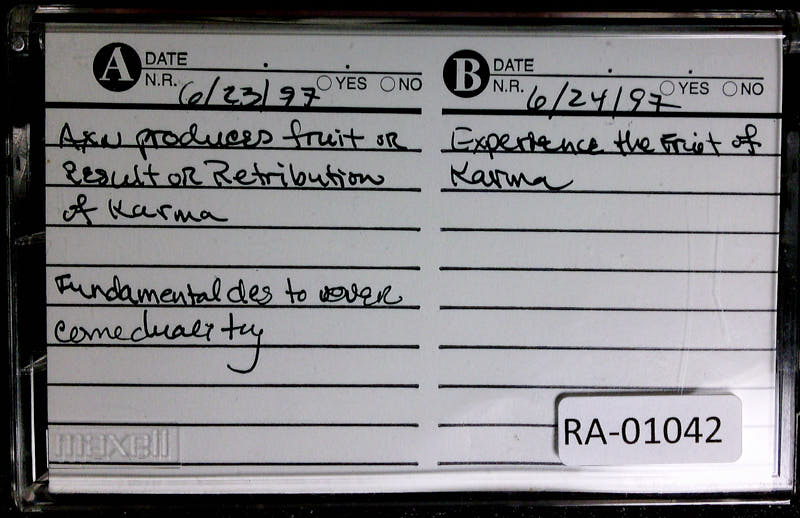 A DATE
N.R. 6/23/97 YES NO
Axn produces fruit or
Result or Retribution
of Karma
Fundamental des to over
comeduality
maxell
B DATE
N.R. 6/24/97 YES NO
Experience the Fruit of
Karma
RA-01042